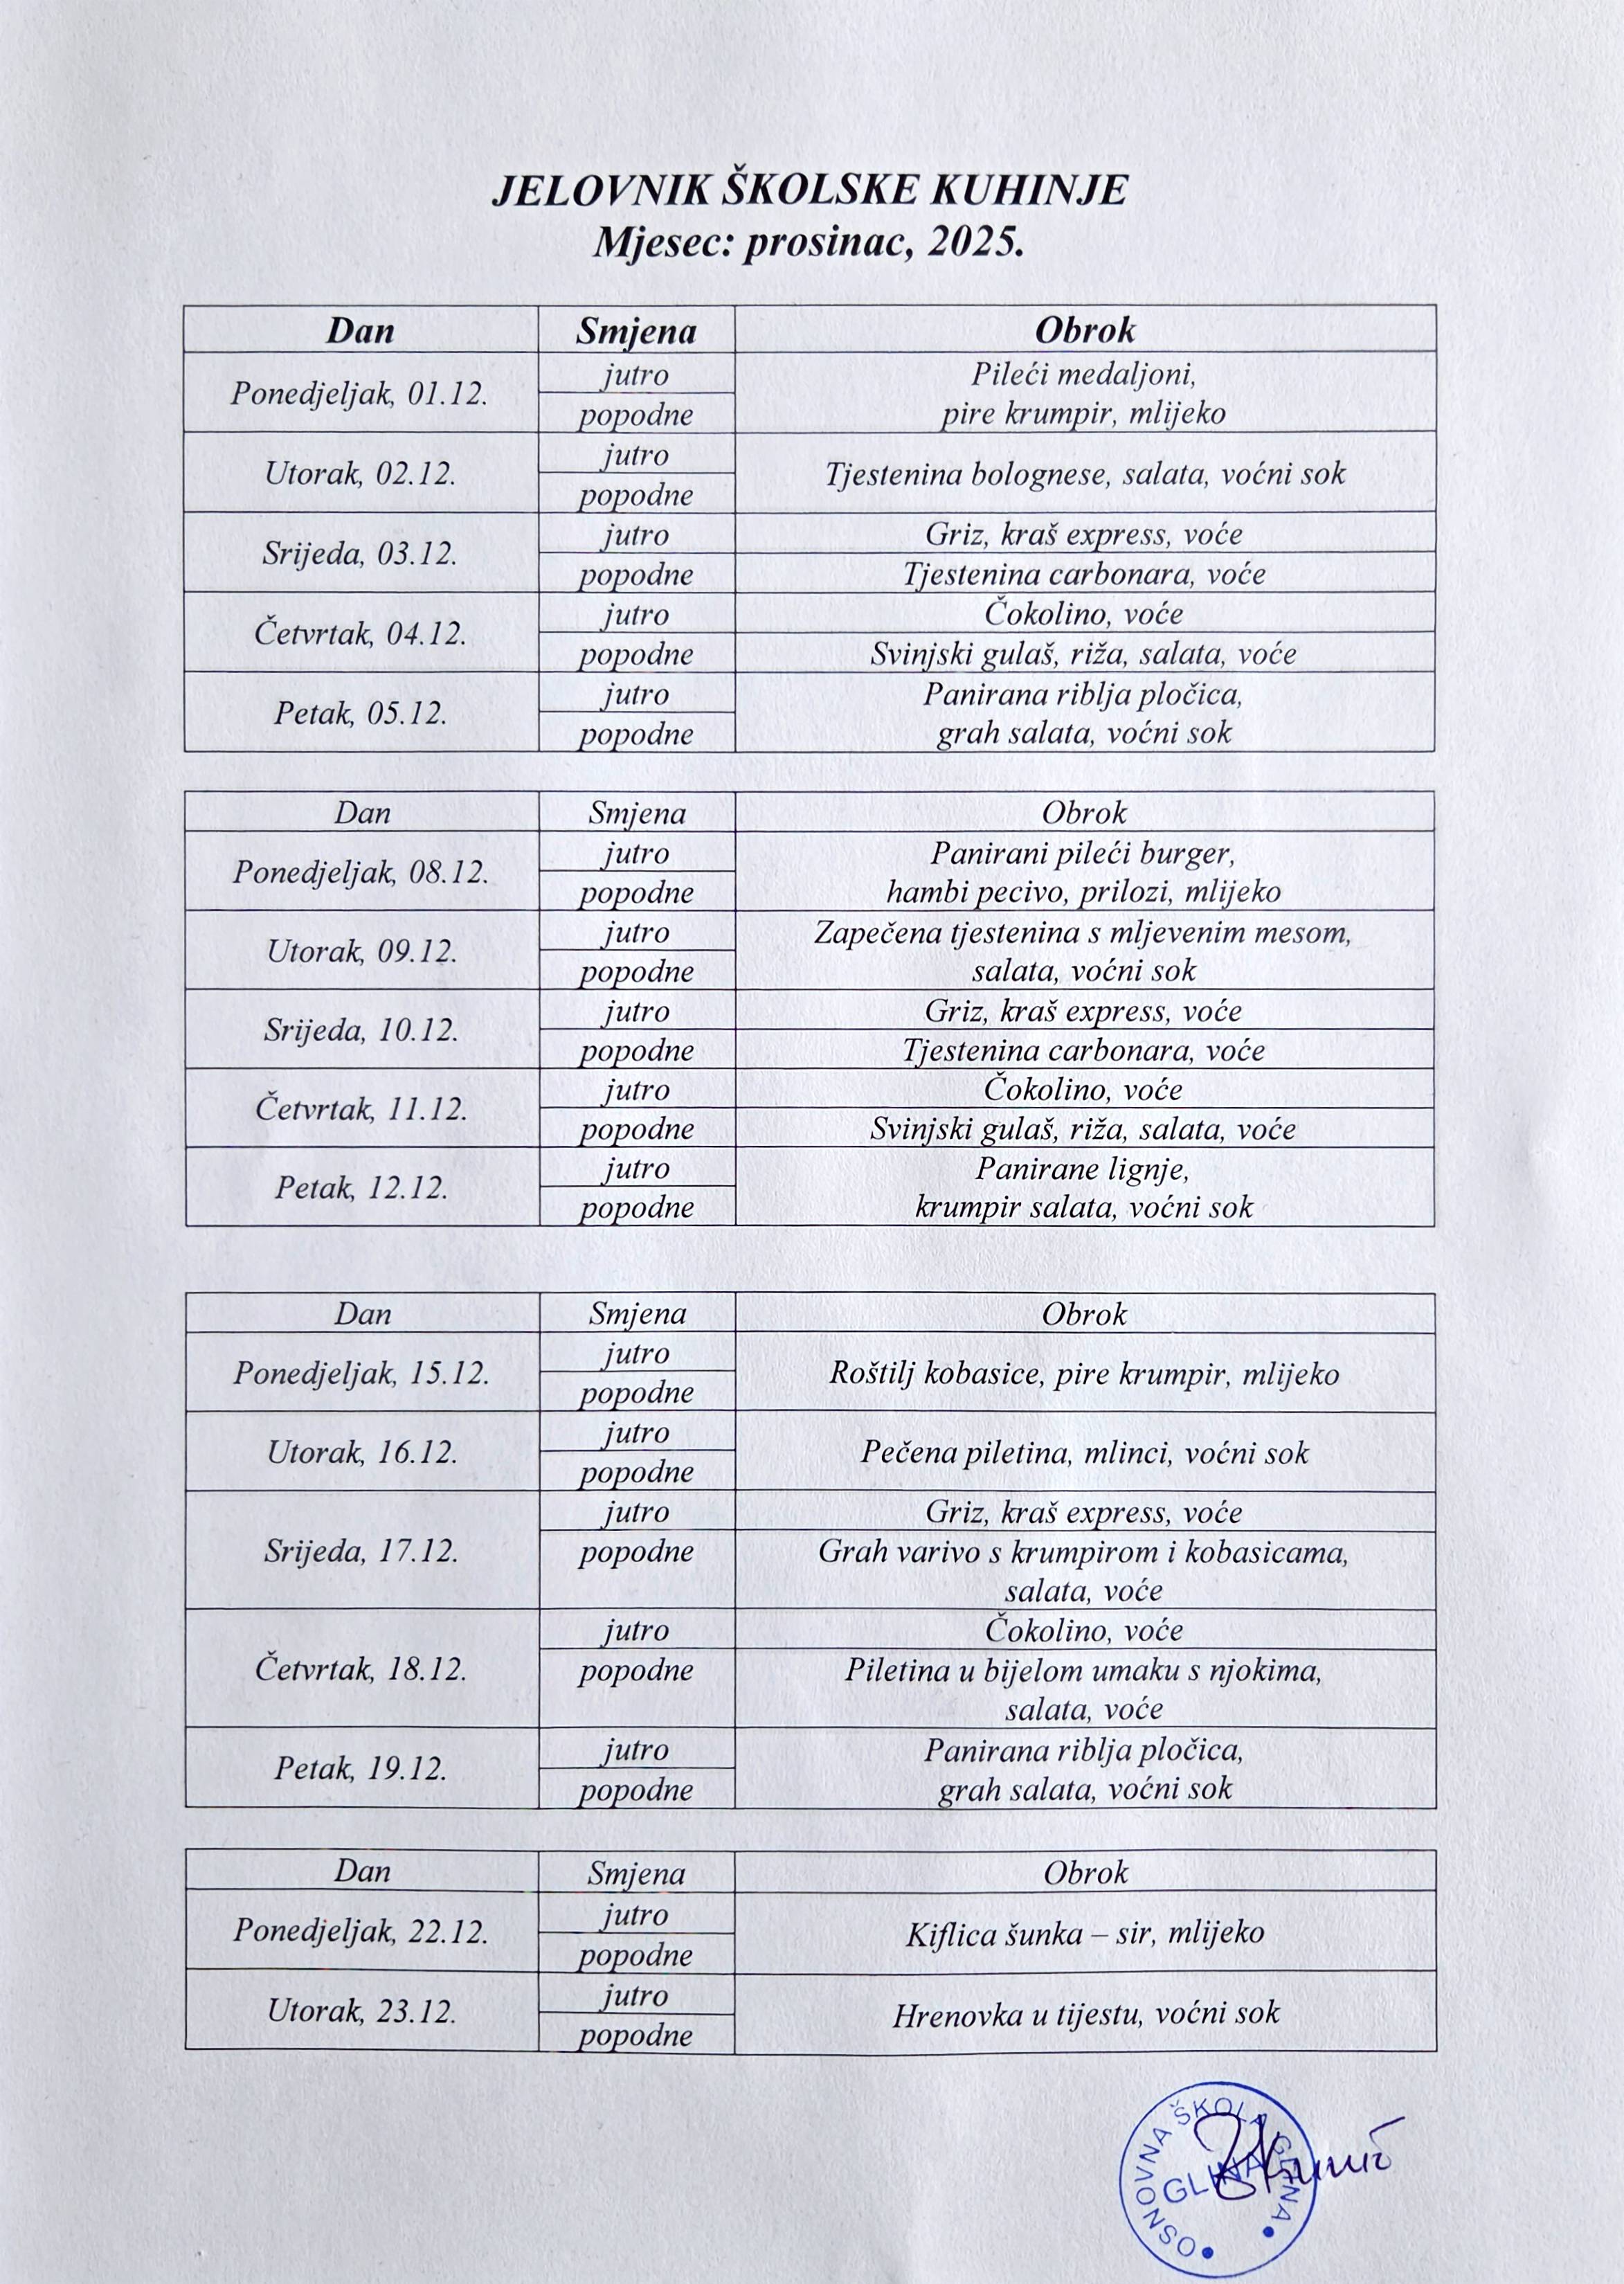 JELOVNIK ŠKOLSKE KUHINJE
Mjesec: prosinac, 2025.
Dan Smjena Obrok
Ponedjeljak, 01.12.
jutro
popodne
Pileći medaljoni,
pire krumpir, mlijeko
Utorak, 02.12.
jutro
popodne
Tjestenina bolognese, salata, voćni sok
Srijeda, 03.12.
jutro Griz, kraš express, voće
popodne Tjestenina carbonara, voće
Četvrtak, 04.12.
jutro Čokolino, voće
popodne Svinjski gulaš, riža, salata, voće
Petak, 05.12.
jutro
popodne
Panirana riblja pločica,
grah salata, voćni sok
Dan Smjena Obrok
Ponedjeljak, 08.12.
jutro
popodne
Panirani pileći burger,
hambi pecivo, prilozi, mlijeko
Utorak, 09.12.
jutro
popodne
Zapečena tjestenina s mljevenim mesom,
salata, voćni sok
Srijeda, 10.12.
jutro Griz, kraš express, voće
popodne Tjestenina carbonara, voće
Četvrtak, 11.12.
jutro Čokolino, voće
popodne Svinjski gulaš, riža, salata, voće
Petak, 12.12.
jutro
popodne
Panirane lignje,
krumpir salata, voćni sok
Dan Smjena Obrok
Ponedjeljak, 15.12.
jutro
popodne
Roštilj kobasice, pire krumpir, mlijeko
Utorak, 16.12.
jutro
popodne
Pečena piletina, mlinci, voćni sok
Srijeda, 17.12.
jutro Griz, kraš express, voće
popodne Grah varivo s krumpirom i kobasicama,
salata, voće
Četvrtak, 18.12.
jutro Čokolino, voće
popodne Piletina u bijelom umaku s njokima,
salata, voće
Petak, 19.12.
jutro
popodne
Panirana riblja pločica,
grah salata, voćni sok
Dan Smjena Obrok
Ponedjeljak, 22.12.
jutro
popodne
Kiflica šunka – sir, mlijeko
Utorak, 23.12.
jutro
popodne
Hrenovka u tijestu, voćni sok
OSNOVNA ŠKOLA GLINA
GLINA